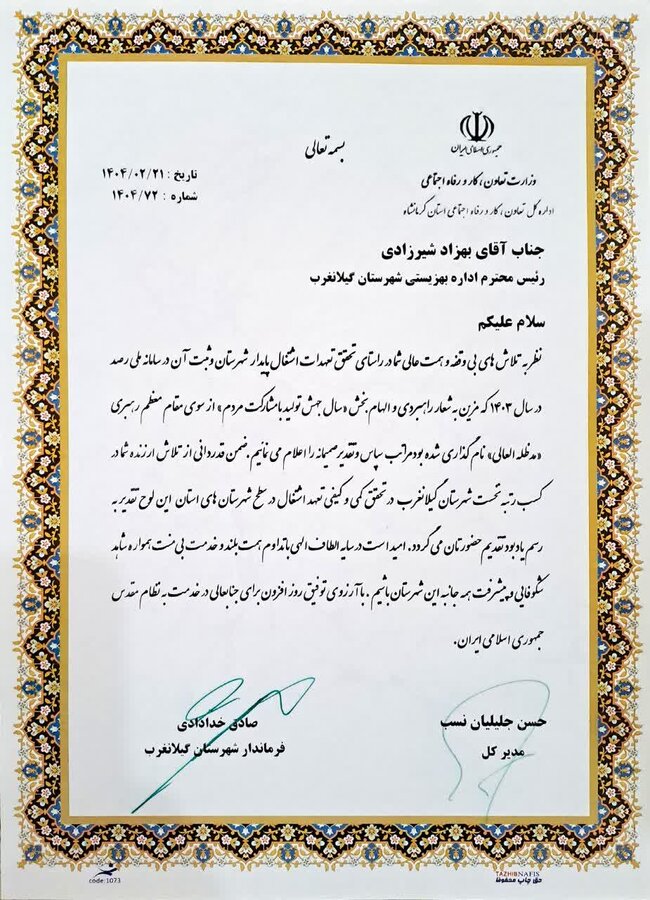 جمهوری اسلامی ایران
بسمه تعالی
تاریخ : ۱۴۰۴/۰۲/۲۱
شماره : ۱۴۰۴/۷۲
وزارت تعاون، کار و رفاه اجتماعی
اداره کل تعاون، کار و رفاه اجتماعی استان کرمانشاه
جناب آقای بهزاد شیرزادی
رئیس محترم اداره بهزیستی شهرستان گیلانغرب
سلام علیکم
نظر به تلاش های بی وقفه و همت عالی شما در راستای تحقق تعهدات اشتغال پایدار شهرستان و ثبت آن در سامانه ملی رصد
در سال ۱۴۰۳ که مزین به شعار راهبردی و الهام بخش «سال جهش تولید با مشارکت مردم» از سوی مقام معظم رهبری
«مدظله العالی» نام گذاری شده بود مراتب سپاس و تقدیر صمیمانه را اعلام می نمائیم .ضمن قدردانی از تلاش ارزنده شما در
کسب رتبه نخست شهرستان گیلانغرب در تحقق کمی و کیفی تعهد اشتغال در سطح شهرستان های استان این لوح تقدیر به
رسم یادبود تقدیم حضورتان می گردد. امید است در سایه الطاف الهی با تداوم همت بلند و خدمت بی منت همواره شاهد
شکوفایی و پیشرفت همه جانبه این شهرستان باشیم . با آرزوی توفیق روز افزون برای جنابعالی در خدمت به نظام مقدس
جمهوری اسلامی ایران.
حسن جلیلیان نسب
مدیر کل
صادق خدادادی
فرماندار شهرستان گیلانغرب
code:1073
TAZHIBNAFIS
حق چاپ محفوظ